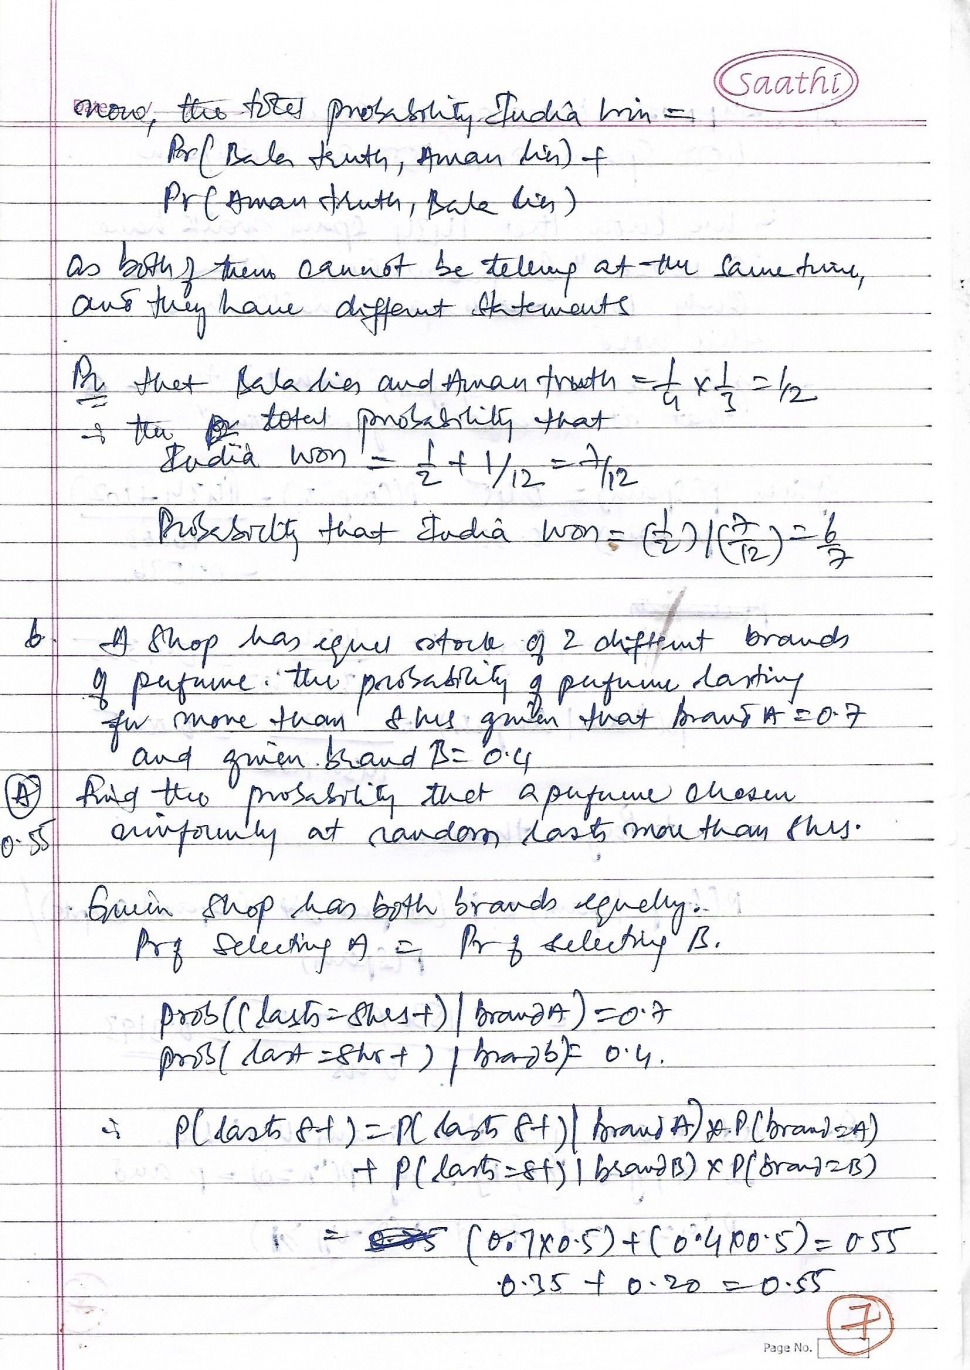 Saathi
now, the total probability India win =
Pr( Bala truth, Aman lies) +
Pr( Aman truth, Bala lies)
as both of them cannot be telling at the same time,
and they have different statements
Pr that Bala lies and Aman truth = 1/4 × 1/3 = 1/12
∴ the total probability that
India won = 1/2 + 1/12 = 7/12
Probability that India won = (1/2) / (7/12) = 6/7
b. A shop has equal stock of 2 different brands
of perfume. The probability of perfume lasting
for more than 8 hrs given that brand A = 0.7
and given brand B = 0.4
A find the probability that a perfume chosen
0.55 uniformly at random lasts more than 8hrs.
Given shop has both brands equally.
Pr of selecting A = Pr of selecting B.
prob((lasts = 8hrs+) | brand A) = 0.7
prob( last = 8hr+ ) | brand b) = 0.4.
∴ P(lasts 8+) = P( lasts 8+) | brand A) × P(brand = A)
+ P( lasts = 8+) | brand B) × P(brand = B)
= (0.7 × 0.5) + (0.4 × 0.5) = 0.55
0.35 + 0.20 = 0.55
7
Page No.